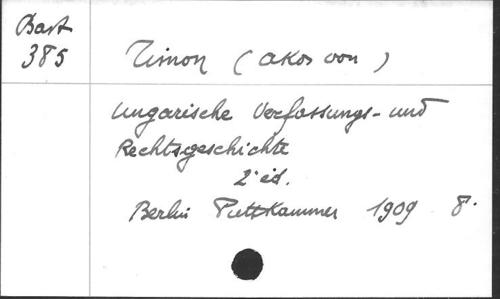 Bart
385
Timon (Akos von)
Ungarische Verfassungs- und
Rechtsgeschichte
2e éd.
Berlin Puttkammer 1909 8°.